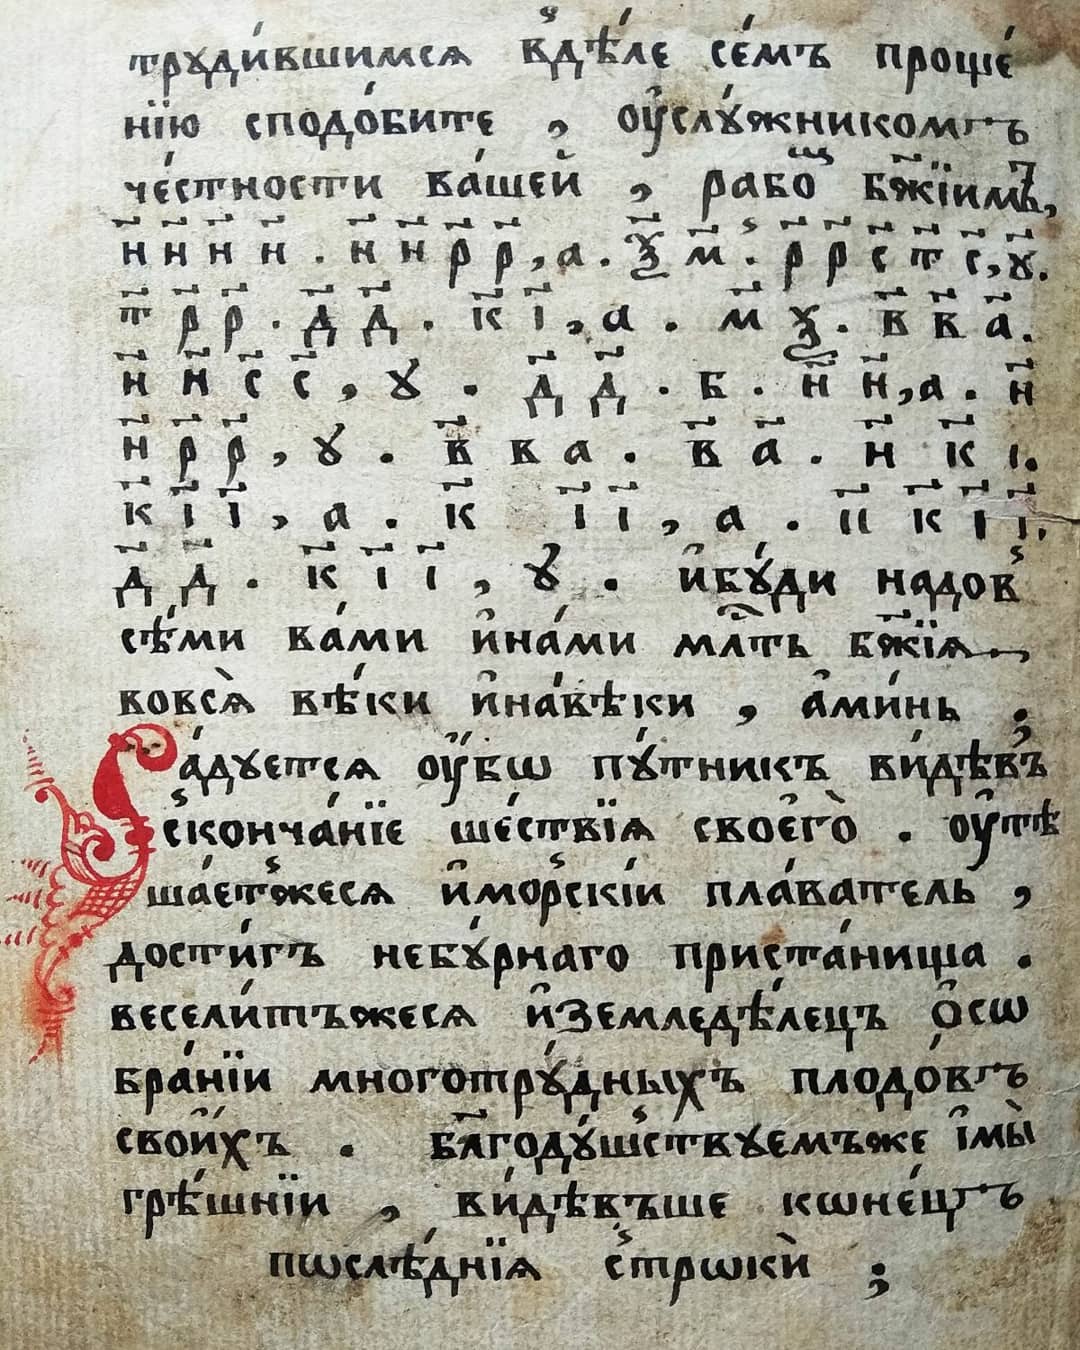 трꙋди́вшимсѧ вдѣ́ле се́мъ проще́
нїю сподо́бите , ѹ҆слꙋ́жникомъ
че́стности ва́шей , рабѡ́щ бж҃їимъ,
н҃ н҃ н҃ н҃ . н҃ н҃ р҃ р҃ , а . ѯ҃ м҃ . р҃ р҃ с҃ т҃ с҃ , ꙋ҃ .
т҃ р҃ р҃ . д҃ д҃ . к҃ і҃ , а . м҃ ѯ . в҃ в҃ а҃ .
н҃ н҃ с҃ с҃ , ꙋ . д҃ д҃ . б . н҃ н҃ , а . н҃
н҃ р҃ р҃ , ꙋ . в҃ к а . в҃ а҃ . н҃ к҃ і .
к҃ і҃ і҃ , а . к҃ і҃ і҃ , а . п҃ к҃ і҃ і҃ .
д҃ д҃ . к҃ і҃ і҃ , ꙋ . и҆бꙋ́ди надов
сѣ́ми ва́ми и҆на́ми мл҃ть бж҃їѧ
вовсѧ̀ вѣ́ки и҆на́вѣки , а҆ми́нь ;
а́дуетсѧ ѹ҆́бѡ пꙋ́тникъ ви́дѣвъ
сконча́нїе ше́ствїѧ свое҆го̀ . ѹ҆тѣ
ша́етжесѧ и҆морскі́и пла́ватель ,
дости́гъ небꙋ́рнаго приста́нища .
весели́тъжесѧ и҆земледѣ́лецъ ѻ҆сѡ
бра́нїи многотрꙋ́дныхъ плодо́въ
свои́хъ . бл҃годꙋ́шствꙋемъже і҆мы̀
грѣ́шнїи , ви́дѣвъше кѡне́цъ
пѡслѣ́днїѧ стрѡкѝ ;